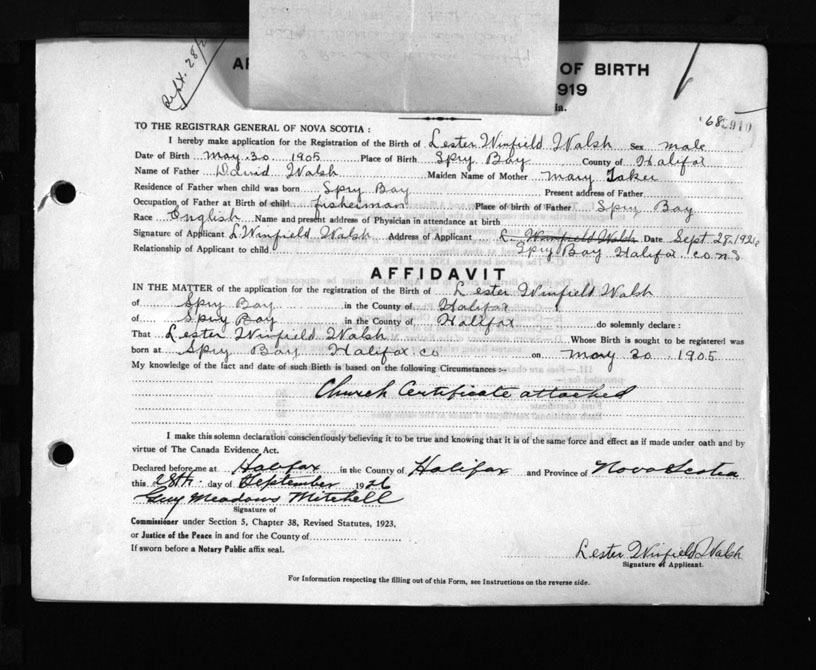 Sept. 28/2
OF BIRTH
1919
TO THE REGISTRAR GENERAL OF NOVA SCOTIA :
I hereby make application for the Registration of the Birth of Lester Winfield Walsh Sex male
Date of Birth may 30 1905 Place of Birth Spry Bay County of Halifax
Name of Father David Walsh Maiden Name of Mother Mary
Residence of Father when child was born Spry Bay Present address of Father
Occupation of Father at Birth of child fisherman Place of birth of Father Spry Bay
Race English Name and present address of Physician in attendance at birth
Signature of Applicant L. Winfield Walsh Address of Applicant L. Winfield Walsh Date Sept 28-1926
Relationship of Applicant to child Spry Bay Halifax co NS
AFFIDAVIT
IN THE MATTER of the application for the registration of the Birth of Lester Winfield Walsh
of Spry Bay in the County of Halifax
of Spry Bay in the County of Halifax do solemnly declare :
That Lester Winfield Walsh Whose Birth is sought to be registered was
born at Spry Bay Halifax co on may 30 1905
My knowledge of the fact and date of such Birth is based on the following Circumstances :-
Church Certificate attached
I make this solemn declaration conscientiously believing it to be true and knowing that it is of the same force and effect as if made under oath and by
virtue of The Canada Evidence Act.
Declared before me at Halifax in the County of Halifax and Province of Nova Scotia
this 28th. day of September 1926
Guy Meadows Mitchell
Signature of
Commissioner under Section 5, Chapter 38, Revised Statutes, 1923,
or Justice of the Peace in and for the County of
If sworn before a Notary Public affix seal.
Lester Winfield Walsh
Signature of Applicant.
For Information respecting the filling out of this Form, see Instructions on the reverse side.